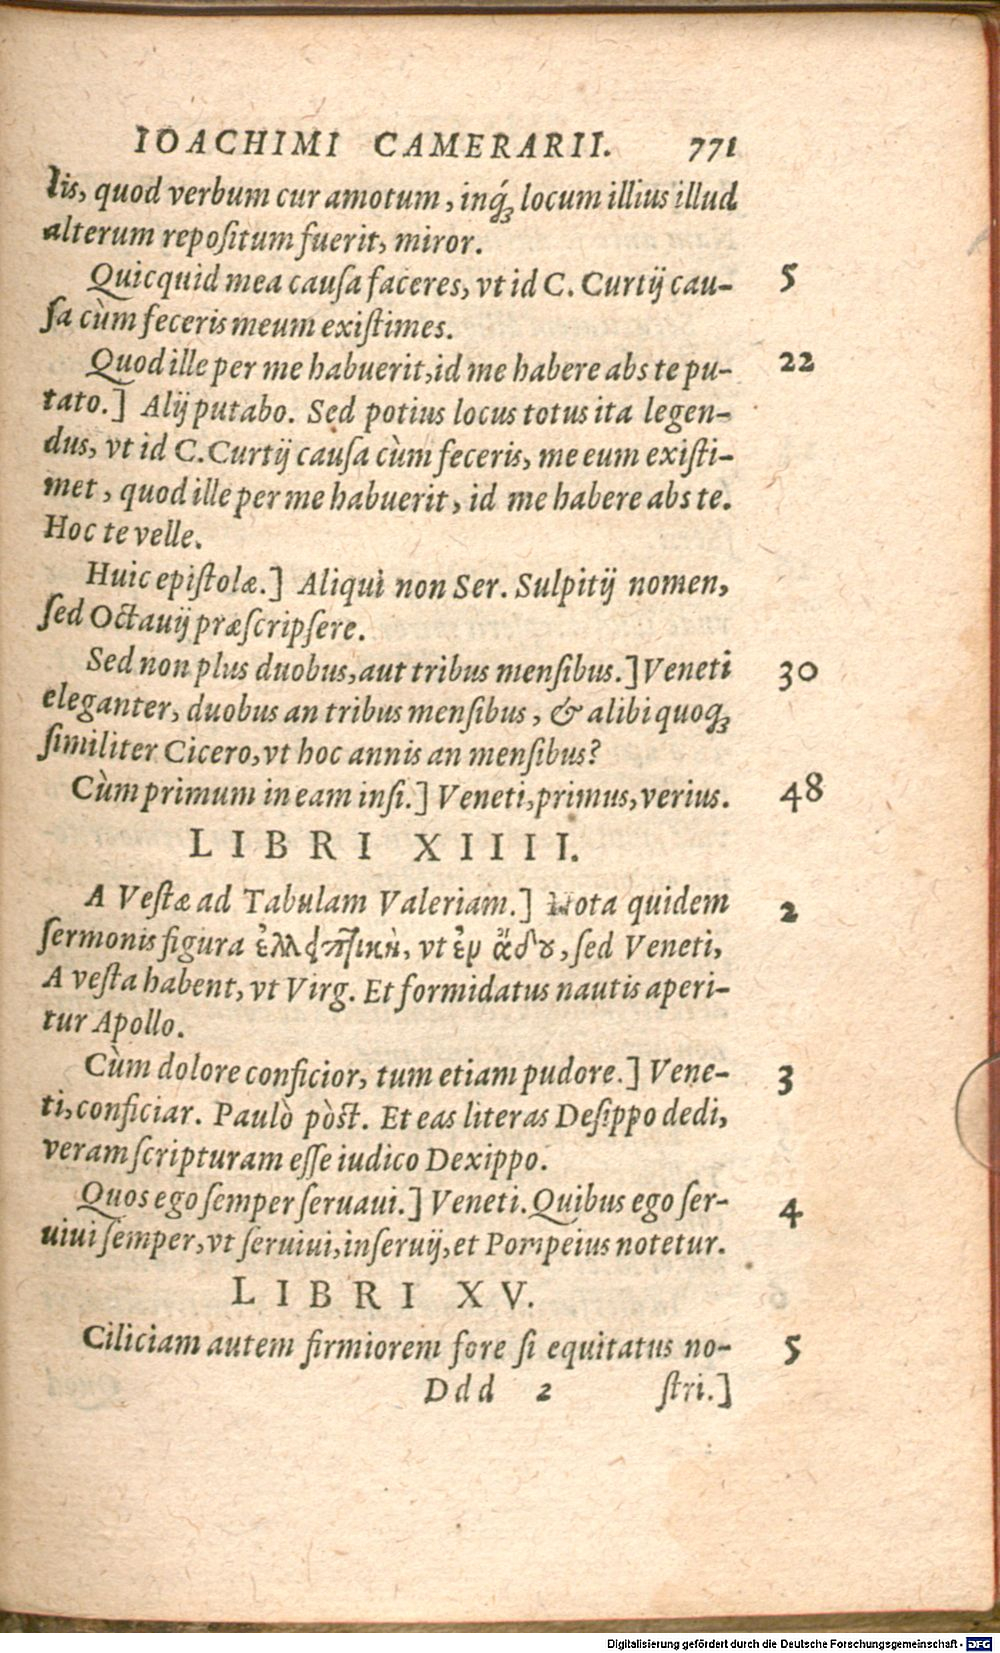 IOACHIMI CAMERARII. 771
lis, quod verbum cur amotum, inq́ꝫ locum illius illud
alterum repoſitum fuerit, miror.
Quicquid mea cauſa faceres, vt id C. Curtij cau- 5
ſa cùm feceris meum exiſtimes.
Quod ille per me habuerit, id me habere abs te pu- 22
tato.] Alij putabo. Sed potius locus totus ita legen-
dus, vt id C. Curtij cauſa cùm feceris, me eum exiſti-
met, quod ille per me habuerit, id me habere abs te.
Hoc te velle.
Huic epiſtolæ.] Aliqui non Ser. Sulpitij nomen,
ſed Octauij præſcripſere.
Sed non plus duobus, aut tribus menſibus.] Veneti 30
eleganter, duobus an tribus menſibus, & alibi quoqꝫ
ſimiliter Cicero, vt hoc annis an menſibus?
Cùm primum in eam inſi.] Veneti, primus, verius. 48
LIBRI XIIII.
A Veſtæ ad Tabulam Valeriam.] Nota quidem 2
ſermonis figura ἐλλειπτικὴ, vt ἐν ᾅδου, ſed Veneti,
A veſta habent, vt Virg. Et formidatus nautis aperi-
tur Apollo.
Cùm dolore conficior, tum etiam pudore.] Vene- 3
ti, conficiar. Paulò pòst. Et eas literas Deſippo dedi,
veram ſcripturam eſſe iudico Dexippo.
Quos ego ſemper ſeruaui.] Veneti. Quibus ego ſer- 4
uiui ſemper, vt ſeruiui, inſeruij, et Pompeius notetur.
LIBRI XV.
Ciliciam autem firmiorem fore ſi equitatus no- 5
Ddd 2 ſtri.]
Digitalisierung gefördert durch die Deutsche Forschungsgemeinschaft - DFG